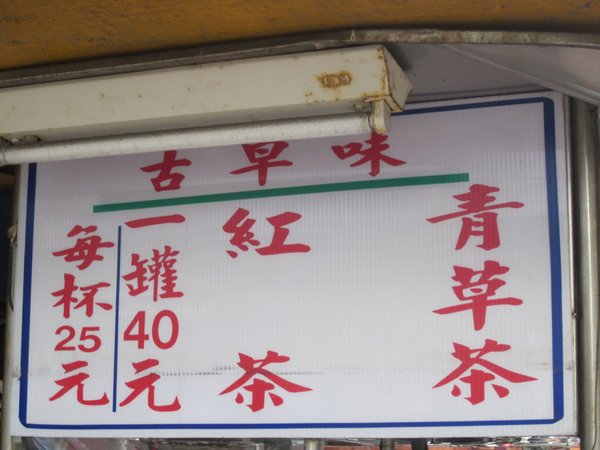 古早味
青草茶
紅茶
一罐40元
每杯25元